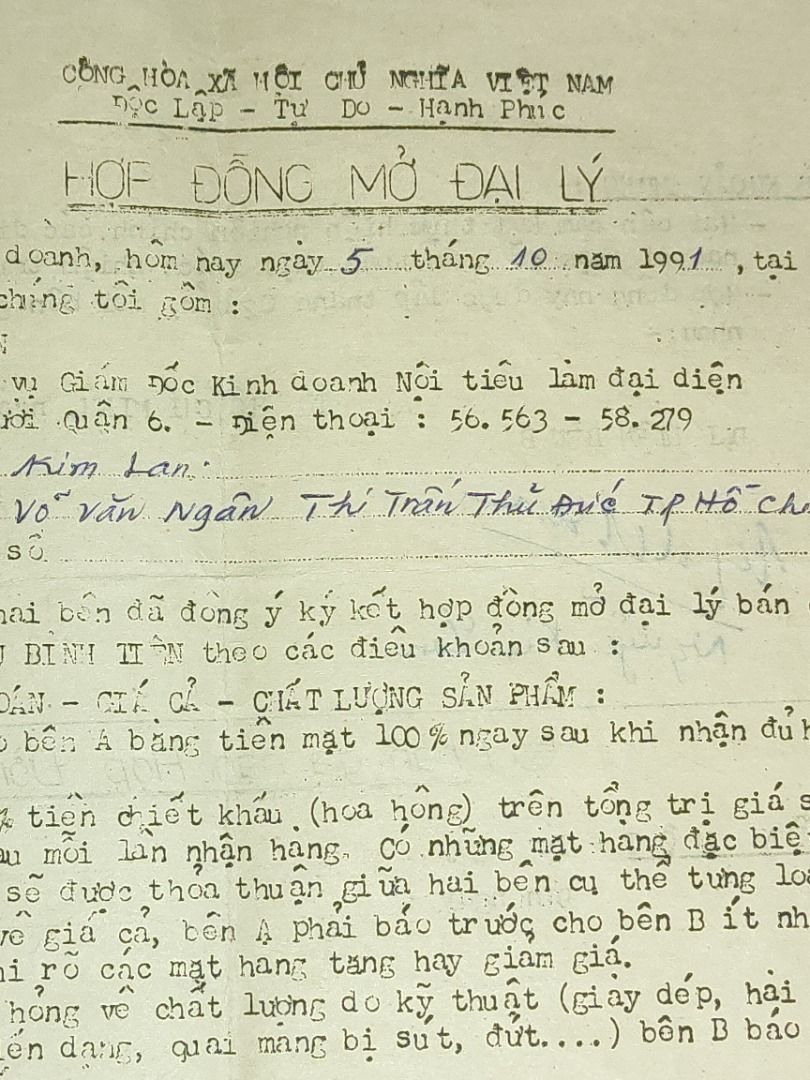 CỘNG HÒA XÃ HỘI CHỦ NGHĨA VIỆT NAM
Độc Lập - Tự Do - Hạnh Phúc
HỢP ĐỒNG MỞ ĐẠI LÝ
doanh, hôm nay ngày 5 tháng 10 năm 1991, tại
chúng tôi gồm :
N
vụ Giám Đốc Kinh doanh Nội tiêu làm đại diện
Quận 6. - Điện thoại : 56.563 - 58.279
Kim Lan.
Võ Văn Ngân Thị Trấn Thủ Đức TP Hồ Ch
số
hai bên đã đồng ý ký kết hợp đồng mở đại lý bán
BÌNH TIÊN theo các điều khoản sau :
OÁN - GIÁ CẢ - CHẤT LƯỢNG SẢN PHẨM :
bên A bằng tiền mặt 100% ngay sau khi nhận đủ h
% tiền chiết khấu (hoa hồng) trên tổng trị giá s
au mỗi lần nhận hàng. Có những mặt hàng đặc biệ
sẽ được thỏa thuận giữa hai bên cụ thể từng loạ
về giá cả, bên A phải báo trước cho bên B ít nh
hi rõ các mặt hàng tăng hay giảm giá.
hỏng về chất lượng do kỹ thuật (giày dép, hài
iến dạng, quai mang bị sút, đứt....) bên B báo